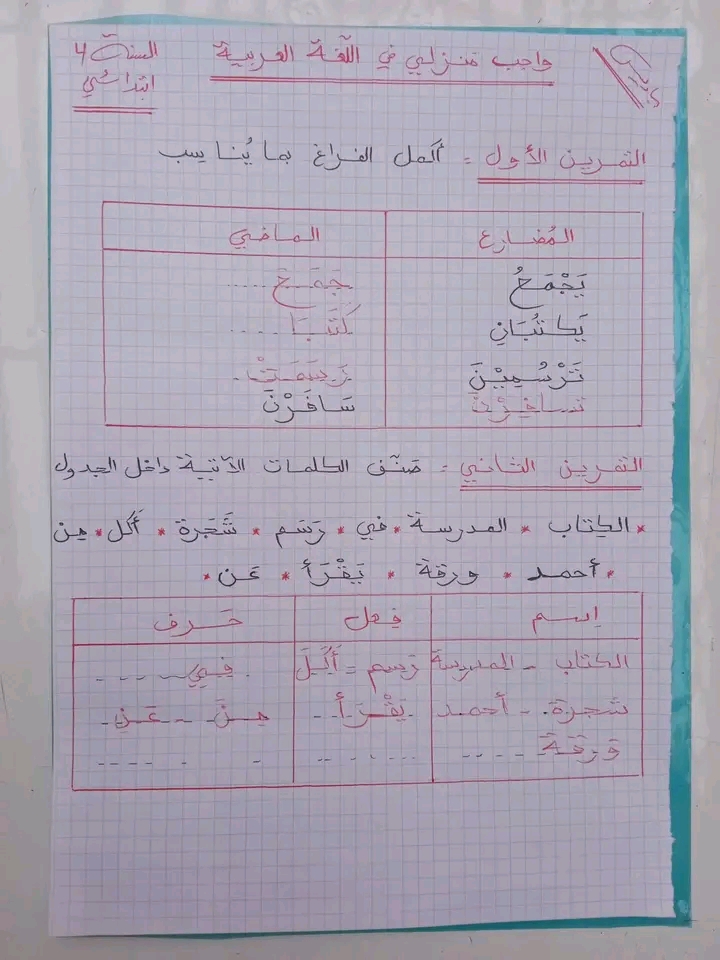 واجب منزلي في اللّغة العربية
السنة 4
ابتدائي
التمرين الأول = أكمل الفراغ بما يُناسب
المُضارع الماضي
يَجْمَعُ جَمَعَ ....
يَكتُبَانِ كَتَبَا ....
تَرْسُمِيْنَ رَسَمَتْ .
تسافِرْنَ سَافَرْنَ
التمرين الثاني = صَنّف الكلمات الآتية داخل الجدول
* الكِتاب * المدرسة * في * رَسَم * شَجَرة * أَكل * مِن
* أحمد * ورقة * يَقْرَأ * عَن *
اِسم فِعل حَرف
الكتاب - المدرسة رَسم - أَكَلَ فِي ....
شجرة - أحمد يَقْرَأ .. مِنَ - عَنِ
ورقة